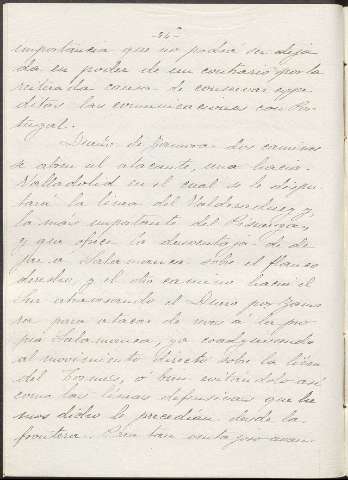 -24-
importancia que no podrá ser deja
da en poder de un contrario por la
reiterada causa de conservar expe
ditas las comunicaciones con Por
tugal.
Dueño de Zamora dos caminos
se abren al atacante, una hacia
Valladolid en el cual se le dispu-
tará la línea del Valderaduey y
la más importante del Pisuerga,
y que ofrece la desventaja de de
jar a Salamanca sobre el flanco
derecho, y el otro camino hacia el
Sur atravesando el Duero por Zamo
ra para atacar de nuevo á la pro
pia Salamanca, ya coadyuvando
al movimiento directo sobre la línea
del Tormes, ó bien evitándolo así
como las líneas defensivas que he
mos dicho le precedían desde la
frontera. Pero tan ventajoso avan-